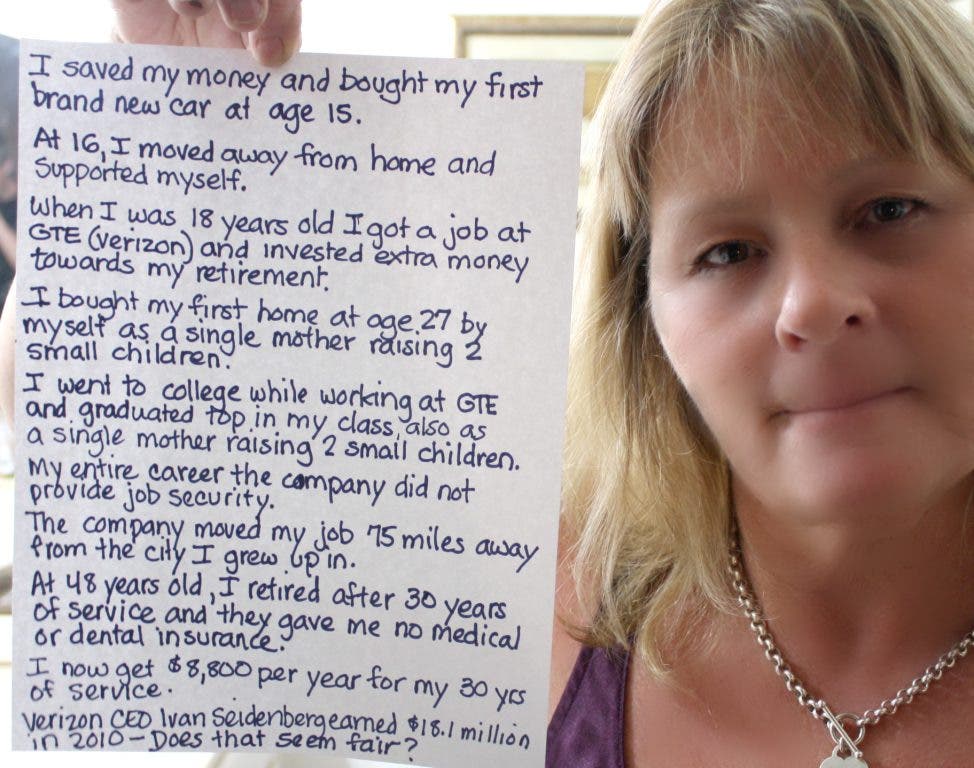 I saved my money and bought my first
brand new car at age 15.
At 16, I moved away from home and
supported myself.
When I was 18 years old I got a job at
GTE (verizon) and invested extra money
towards my retirement.
I bought my first home at age 27 by
myself as a single mother raising 2
small children.
I went to college while working at GTE
and graduated top in my class, also as
a single mother raising 2 small children.
My entire career the company did not
provide job security.
The company moved my job 75 miles away
from the city I grew up in.
At 48 years old, I retired after 30 years
of service and they gave me no medical
or dental insurance.
I now get $8,800 per year for my 30 yrs
of service.
Verizon CEO Ivan Seidenberg earned $18.1 million
in 2010 - Does that seem fair?